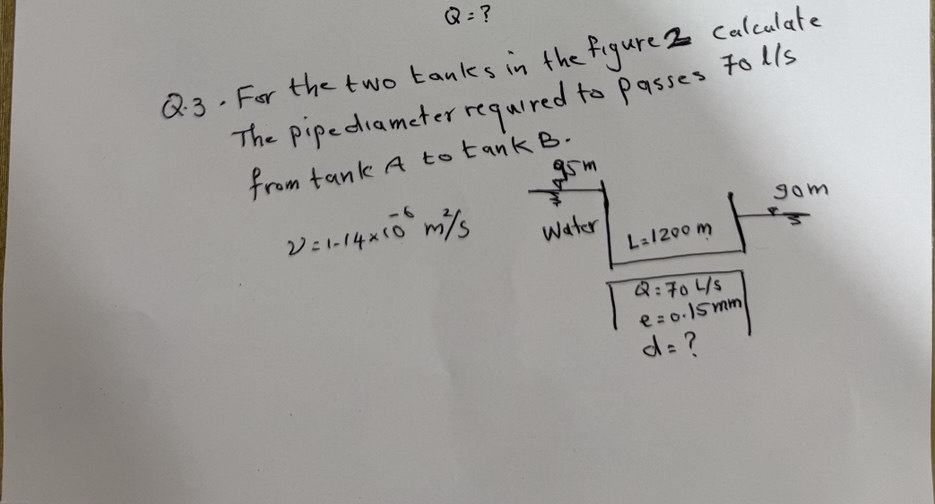 Q = ?
Q.3. For the two tanks in the figure 2 calculate
The pipe diameter required to passes 70 l/s
from tank A to tank B.
95m
90m
ν = 1.14×10⁻⁶ m²/s
Water
L=1200 m
Q = 70 L/s
e = 0.15mm
d = ?